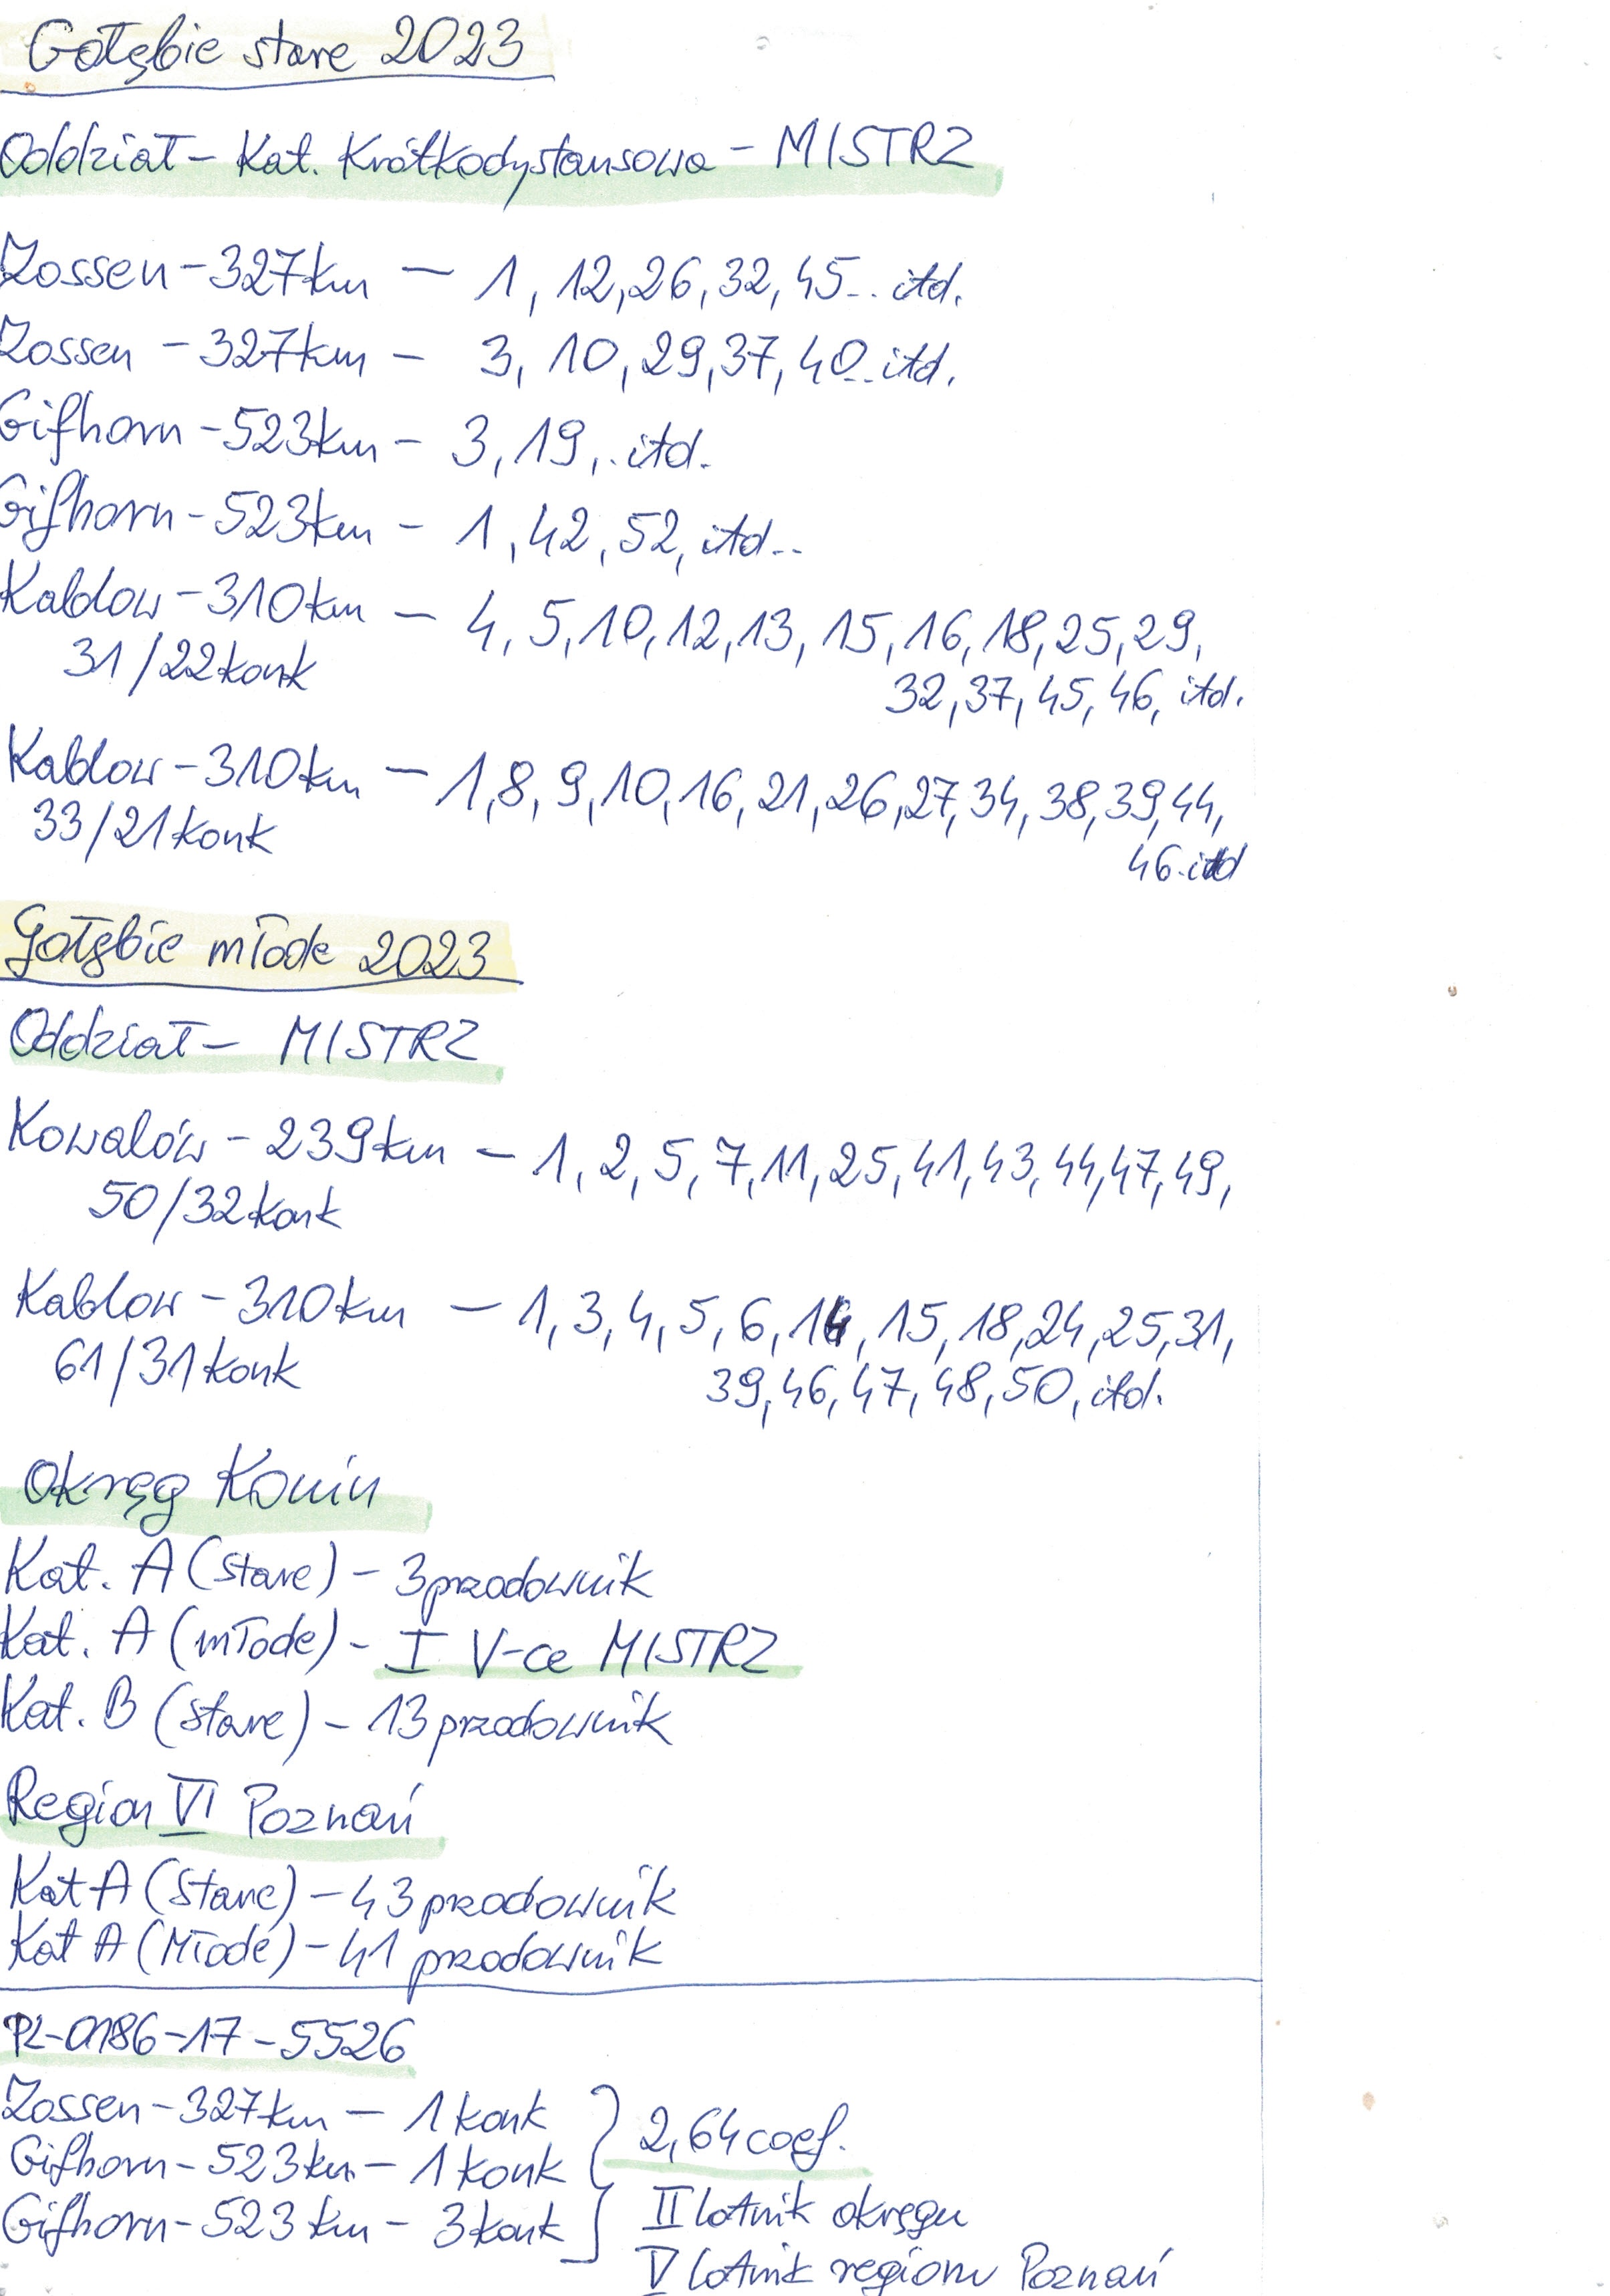 Gołębie stare 2023
Oddział - Kat. Krótkodystansowa - MISTRZ
Zossen - 327km - 1, 12, 26, 32, 45.. itd.
Zossen - 327km - 3, 10, 29, 37, 40.. itd.
Gifhorn - 523km - 3, 19,. itd.
Gifhorn - 523km - 1, 42, 52, itd..
Kablow - 310km - 4, 5, 10, 12, 13, 15, 16, 18, 25, 29,
31/22konk
32, 37, 45, 46, itd.
Kablow - 310km - 1, 8, 9, 10, 16, 21, 26, 27, 34, 38, 39, 44,
33/21konk
46. itd
Gołębie młode 2023
Oddział - MISTRZ
Kowalów - 239km - 1, 2, 5, 7, 11, 25, 41, 43, 44, 47, 49,
50/32konk
Kablow - 310km - 1, 3, 4, 5, 6, 14, 15, 18, 24, 25, 31,
61/31konk
39, 46, 47, 48, 50, itd.
Okręg Konin
Kat. A (stare) - 3 przodownik
Kat. A (młode) - I V-ce MISTRZ
Kat. B (stare) - 13 przodownik
Region VI Poznań
Kat A (Stare) - 43 przodownik
Kat A (Młode) - 41 przodownik
PL-0186-17-5526
Zossen - 327km - 1 konk
Gifhorn - 523km - 1 konk
2,64 coef.
Gifhorn - 523 km - 3 konk
II lotnik okręgu
V lotnik regionu Poznań